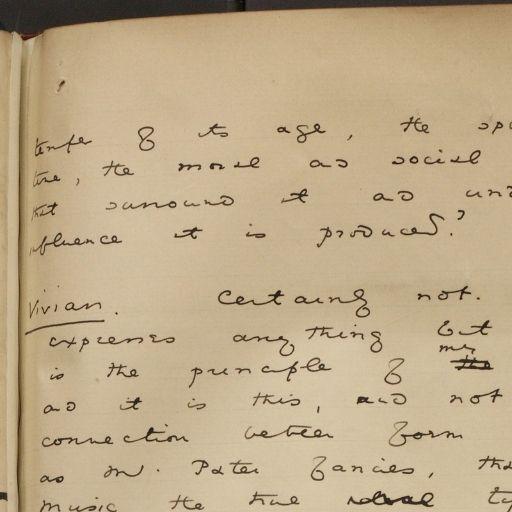 temper of its age, the sp
time, the moral and social
that surround it and und
influence it is produced.?
Vivian. Certainly not.
expresses anything but
is the principle of my the
and it is this, and not
connection between form
as Mr. Pater fancies, tha
music the true ty